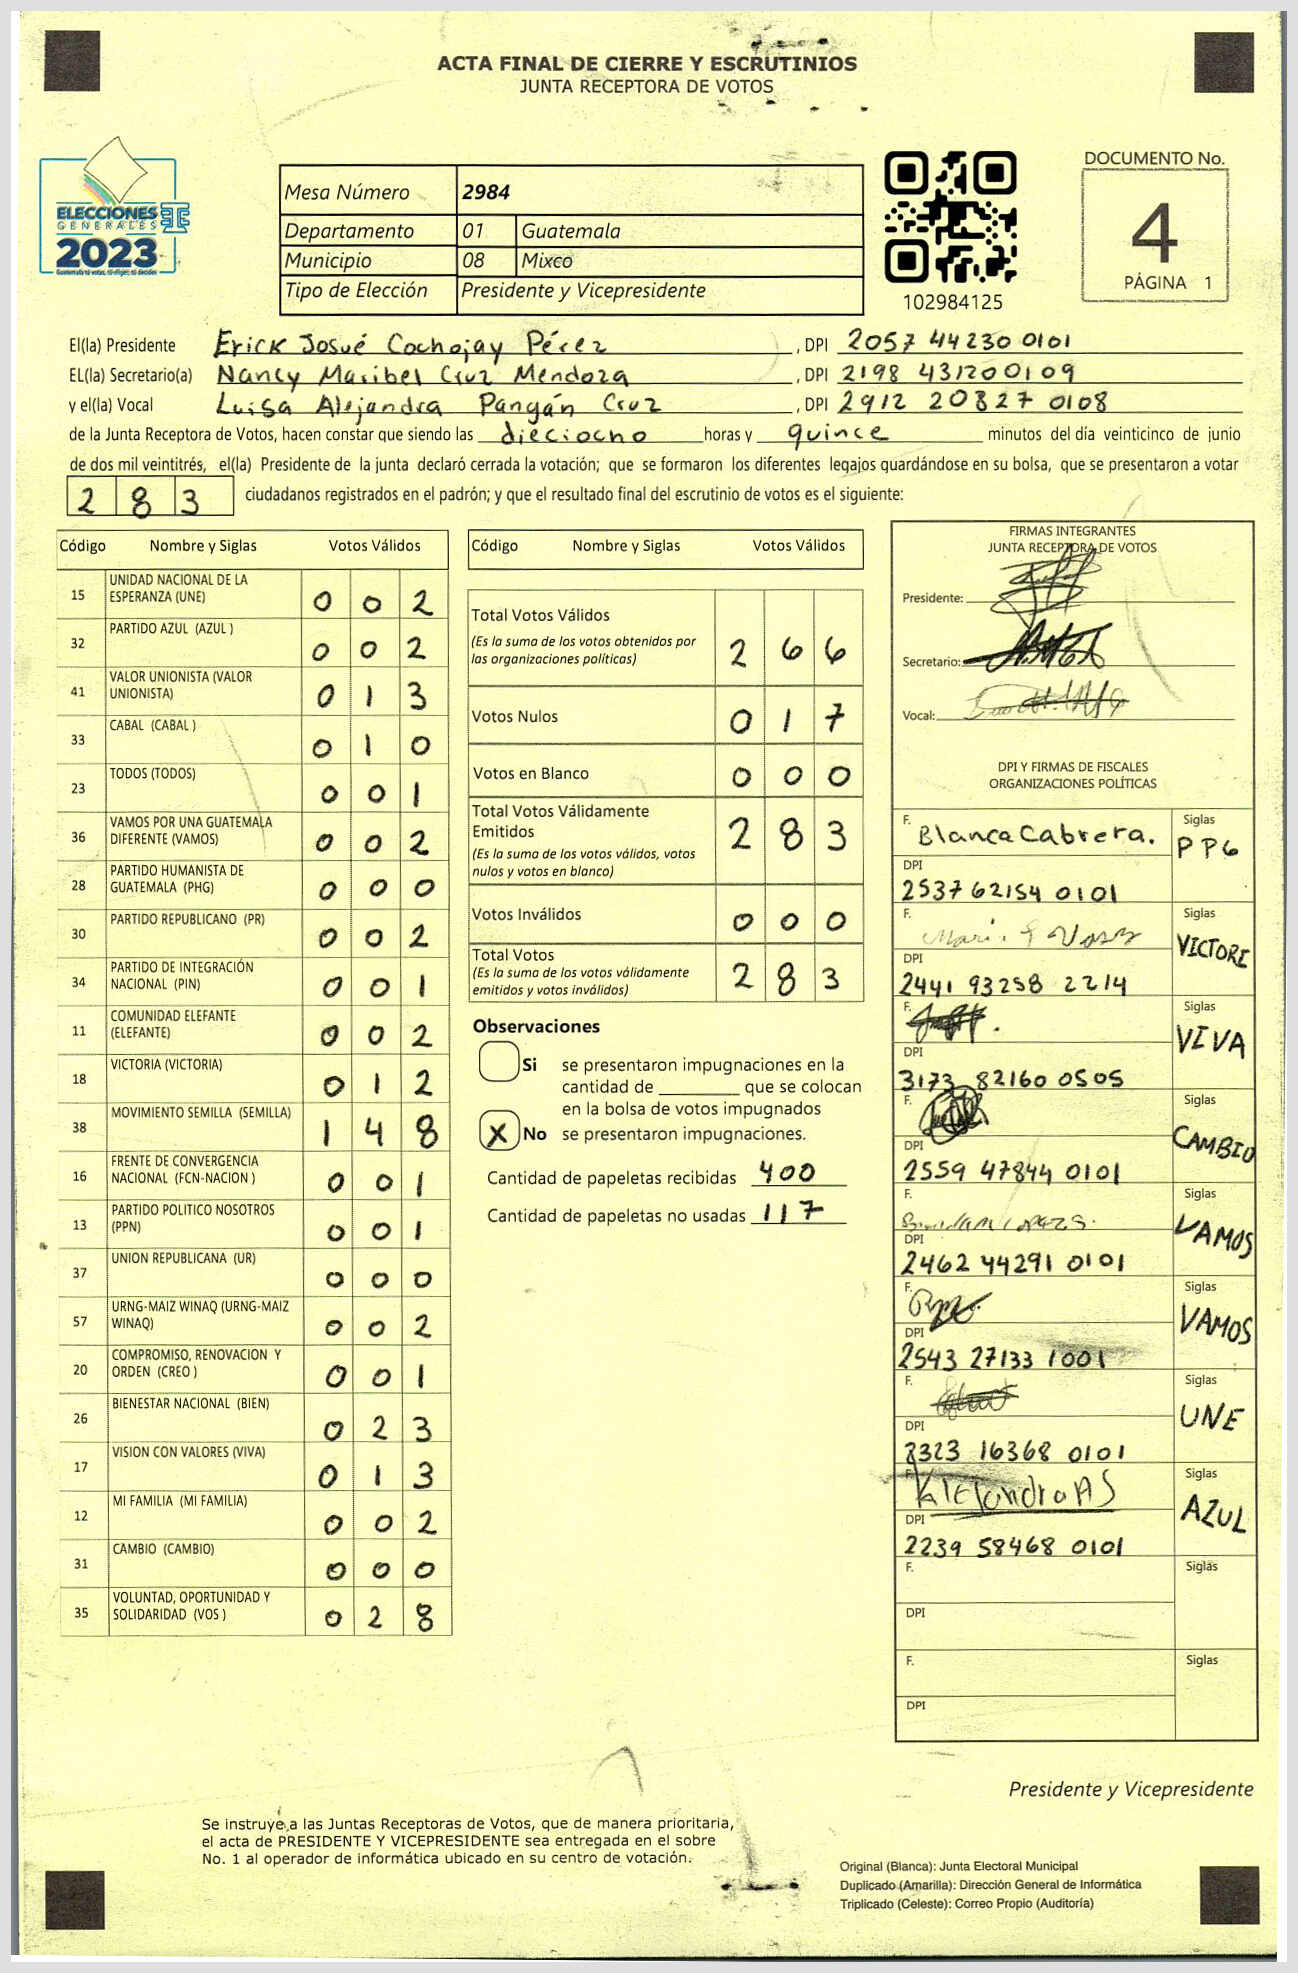 ACTA FINAL DE CIERRE Y ESCRUTINIOS
JUNTA RECEPTORA DE VOTOS
ELECCIONES
GENERALES
2023
Guatemala tú votas, tú eliges, tú decides
Mesa Número 2984
Departamento 01 Guatemala
Municipio 08 Mixco
Tipo de Elección Presidente y Vicepresidente
102984125
DOCUMENTO No.
4
PÁGINA 1
El(la) Presidente Erick Josué Cochojay Pérez , DPI 2057 44230 0101
EL(la) Secretario(a) Nancy Maribel Cruz Mendoza , DPI 2198 43120 0109
y el(la) Vocal Luisa Alejandra Pangán Cruz , DPI 2912 20827 0108
de la Junta Receptora de Votos, hacen constar que siendo las dieciocho horas y quince minutos del día veinticinco de junio
de dos mil veintitrés, el(la) Presidente de la junta declaró cerrada la votación; que se formaron los diferentes legajos guardándose en su bolsa, que se presentaron a votar
283 ciudadanos registrados en el padrón; y que el resultado final del escrutinio de votos es el siguiente:
Código Nombre y Siglas Votos Válidos
15 UNIDAD NACIONAL DE LA ESPERANZA (UNE) 0 0 2
32 PARTIDO AZUL (AZUL ) 0 0 2
41 VALOR UNIONISTA (VALOR UNIONISTA) 0 1 3
33 CABAL (CABAL ) 0 1 0
23 TODOS (TODOS) 0 0 1
36 VAMOS POR UNA GUATEMALA DIFERENTE (VAMOS) 0 0 2
28 PARTIDO HUMANISTA DE GUATEMALA (PHG) 0 0 0
30 PARTIDO REPUBLICANO (PR) 0 0 2
34 PARTIDO DE INTEGRACIÓN NACIONAL (PIN) 0 0 1
11 COMUNIDAD ELEFANTE (ELEFANTE) 0 0 2
18 VICTORIA (VICTORIA) 0 1 2
38 MOVIMIENTO SEMILLA (SEMILLA) 1 4 8
16 FRENTE DE CONVERGENCIA NACIONAL (FCN-NACION ) 0 0 1
13 PARTIDO POLITICO NOSOTROS (PPN) 0 0 1
37 UNION REPUBLICANA (UR) 0 0 0
57 URNG-MAIZ WINAQ (URNG-MAIZ WINAQ) 0 0 2
20 COMPROMISO, RENOVACION Y ORDEN (CREO ) 0 0 1
26 BIENESTAR NACIONAL (BIEN) 0 2 3
17 VISION CON VALORES (VIVA) 0 1 3
12 MI FAMILIA (MI FAMILIA) 0 0 2
31 CAMBIO (CAMBIO) 0 0 0
35 VOLUNTAD, OPORTUNIDAD Y SOLIDARIDAD (VOS ) 0 2 8
Código Nombre y Siglas Votos Válidos
Total Votos Válidos 2 6 6
(Es la suma de los votos obtenidos por
las organizaciones políticas)
Votos Nulos 0 1 7
Votos en Blanco 0 0 0
Total Votos Válidamente
Emitidos 2 8 3
(Es la suma de los votos válidos, votos
nulos y votos en blanco)
Votos Inválidos 0 0 0
Total Votos 2 8 3
(Es la suma de los votos válidamente
emitidos y votos inválidos)
Observaciones
Si se presentaron impugnaciones en la
cantidad de ________ que se colocan
en la bolsa de votos impugnados
X No se presentaron impugnaciones.
Cantidad de papeletas recibidas 400
Cantidad de papeletas no usadas 117
FIRMAS INTEGRANTES
JUNTA RECEPTORA DE VOTOS
Presidente:
Secretario:
Vocal:
DPI Y FIRMAS DE FISCALES
ORGANIZACIONES POLÍTICAS
F. Blanca Cabrera. Siglas PPG
DPI
2537 62154 0101
F. Siglas VICTORI
DPI
2441 93258 2214
F. Siglas VIVA
DPI
3173 82160 0505
F. Siglas CAMBIO
DPI
2559 47844 0101
F. Siglas VAMOS
DPI
2462 44291 0101
F. Siglas VAMOS
DPI
2543 27133 1001
F. Siglas UNE
DPI
2323 16368 0101
F. Alejandro AS Siglas AZUL
DPI
2239 58468 0101
F. Siglas
DPI
F. Siglas
DPI
Presidente y Vicepresidente
Se instruye a las Juntas Receptoras de Votos, que de manera prioritaria,
el acta de PRESIDENTE Y VICEPRESIDENTE sea entregada en el sobre
No. 1 al operador de informática ubicado en su centro de votación.
Original (Blanca): Junta Electoral Municipal
Duplicado (Amarilla): Dirección General de Informática
Triplicado (Celeste): Correo Propio (Auditoría)